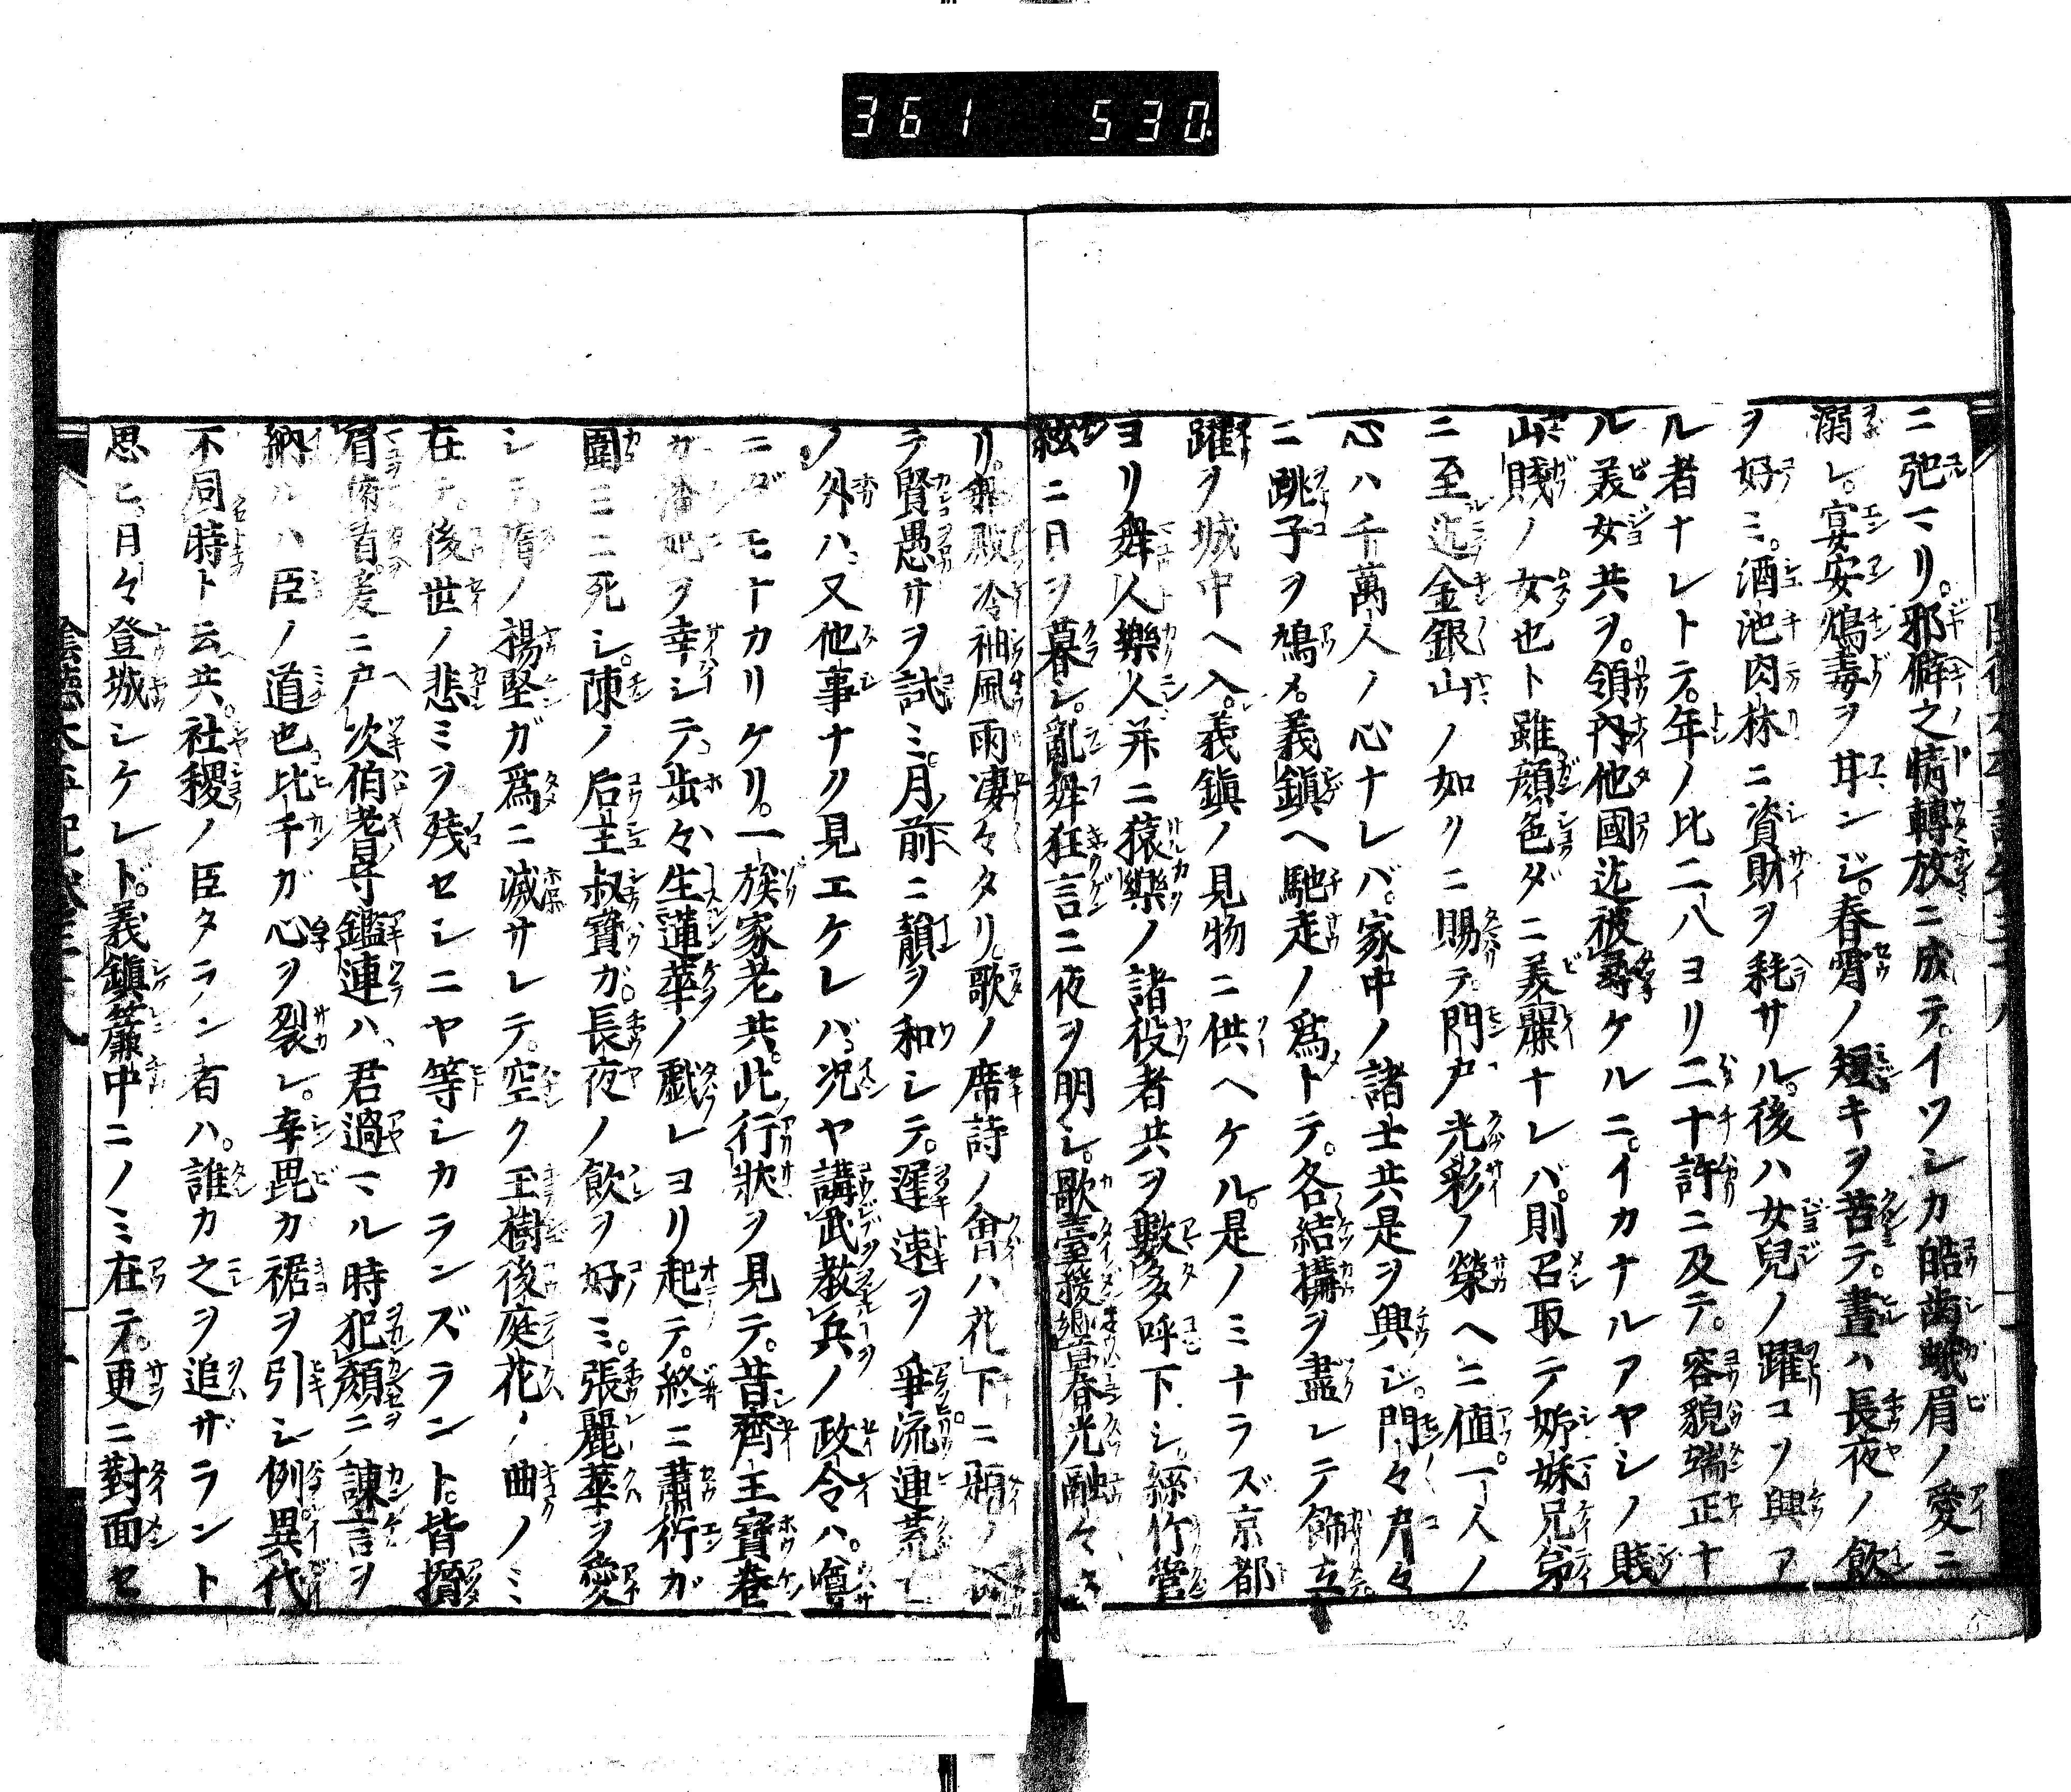 361 530
ニ弛マリ。邪僻之情轉放ニ成テ。イツシカ皓歯蛾眉ノ愛ニ
溺レ。宴安鴆毒ヲ甘ンジ。春霄ノ短キヲ苦テ。晝ハ長夜ノ飲
ヲ好ミ。酒池肉林ニ資財ヲ耗サル。後ハ女兒ノ躍コソ興ア
ル者ナレトテ。年ノ比二八ヨリ二十許ニ及テ。容貌端正ナ
ル美女共ヲ。領内他國迄被尋ケルニ。イカナルアヤシノ賤
山賤ノ女也ト雖。顔色ダニ美麗ナレバ。則召取テ姉妹兄弟
ニ至迄金銀山ノ如クニ賜テ門戸光彩ノ榮ヘニ値。一人ノ
心ハ千萬人ノ心ナレバ。家中ノ諸士共是ヲ興ジ。門々戸々
ニ跳子ヲ鳩メ。義鎭ヘ馳走ノ爲トテ。各結搆ヲ盡シテ餝立
躍ヲ城中ヘ入。義鎭ノ見物ニ供ヘケル。是ノミナラズ京都
ヨリ舞人樂人并ニ猿樂ノ諸役者共ヲ數多呼下シ。絲竹管
絃ニ日ヲ暮シ。亂舞狂言ニ夜ヲ明シ。歌臺暖響春光融々タ
リ。舞殿冷袖風雨凄々タリ。歌ノ席詩ノ會ハ花下ニ
テ賢愚サヲ試ミ。月前ニ韻ヲ和シテ。遲速ヲ爭。流連荒亡
ノ外ハ又他事ナク見エケレバ。况ヤ講武教兵ノ政令ハ。噂
ニダモナカリケリ。一族家老共。此行狀ヲ見テ。昔齊王寶巻
ガ潘妃ヲ幸シテ。歩々生蓮華ノ戯レヨリ起テ。終ニ蕭衍ガ
圍ミニ死シ。陳ノ后主叔寶ガ。長夜ノ飲ヲ好ミ。張麗華ヲ愛
シテ。隋ノ楊堅ガ爲ニ滅サレテ。空ク玉樹後庭花ノ曲ノミ
在テ。後世ノ悲ミヲ残セシニヤ等シカランズラント。皆擯
眉俯首爰ニ戸次伯耆守鑑連ハ。君過マル時犯顔ニ諫言ヲ
納ルハ臣ノ道也比干ガ心ヲ裂レ。辛毘カ裾ヲ引シ例異代
不同時ト云共。社稷ノ臣タラン者ハ。誰カ之ヲ追ザラント
思ヒ。日々登城シケレド。義鎭簾中ニノミ在テ。更ニ對面セ